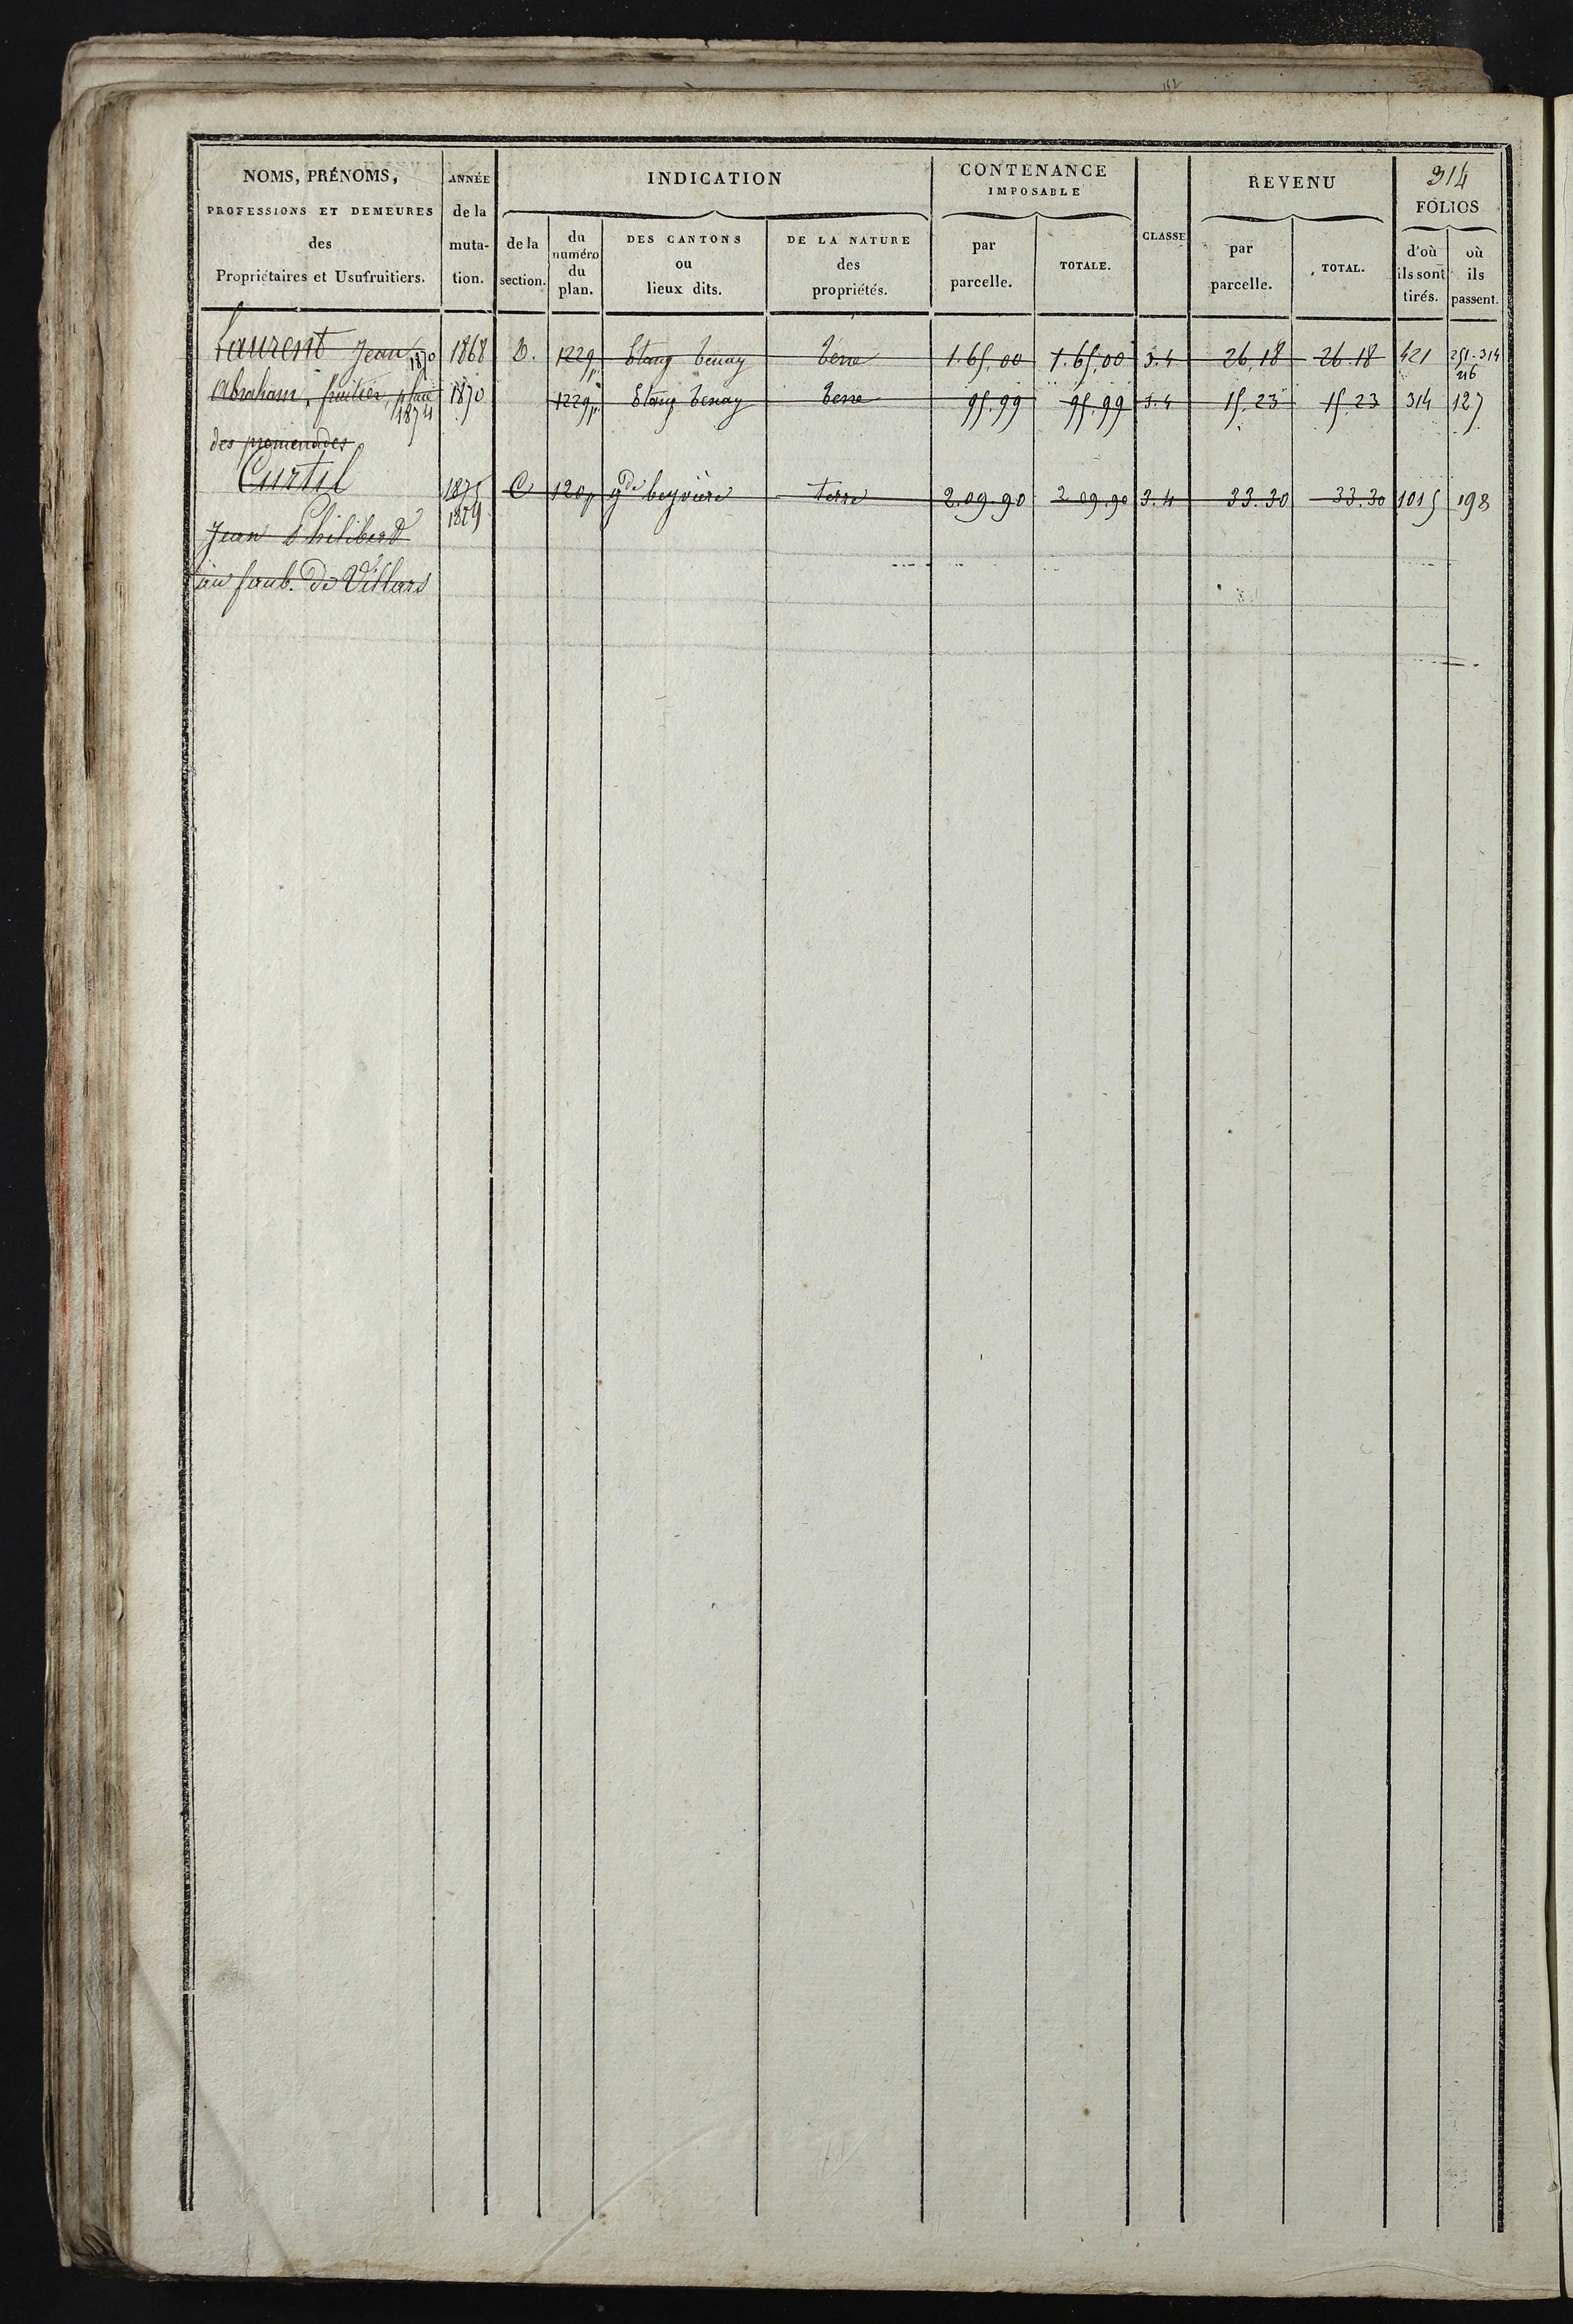 152
314
NOMS, PRÉNOMS, ANNÉE INDICATION CONTENANCE IMPOSABLE CLASSE REVENU FOLIOS
PROFESSIONS ET DEMEURES de la
des muta- de la du numéro du plan. DES CANTONS ou lieux dits. DE LA NATURE des propriétés. par parcelle. TOTALE. par parcelle. TOTAL. d'où ils sont tirés. où ils passent.
Propriétaires et Usufruitiers. tion. section.
Laurent Jean 1870 1868 D. 1229p Etang Tenay Terre 1.65.00 1.65.00 3.4 26,18 26.18 421 251-314
216
Abraham, fruitier, place 1870 1229p Etang Tenay Terre 95.99 95.99 3.4 15.23 15.23 314 127
1874
des promenades
Curtil 1875 C 120p gde beyvière terre 2.09.90 2.09.90 3.4 33.30 33.30 1015 198
1879
Jean Philibert
au faub. de Villars